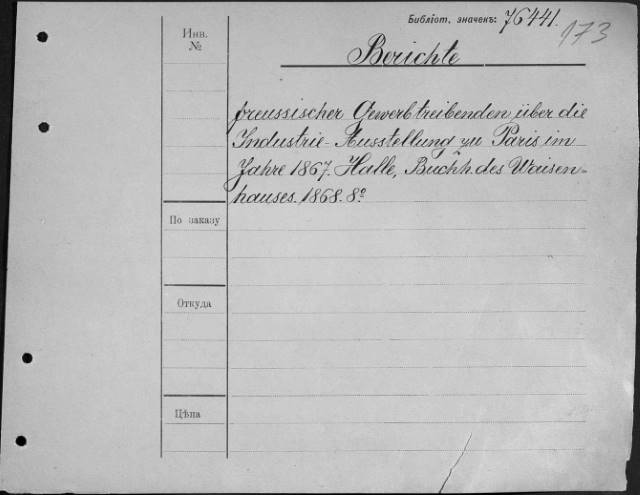 Библіот. значекъ: 76441.
173
Инв.
№
Berichte
preussischer Gewerbtreibenden über die
Industrie-Ausstellung zu Paris im
Jahre 1867. Halle, Buchh. des Waisen-
hauses. 1868. 8º
По заказу
Откуда
Цѣна